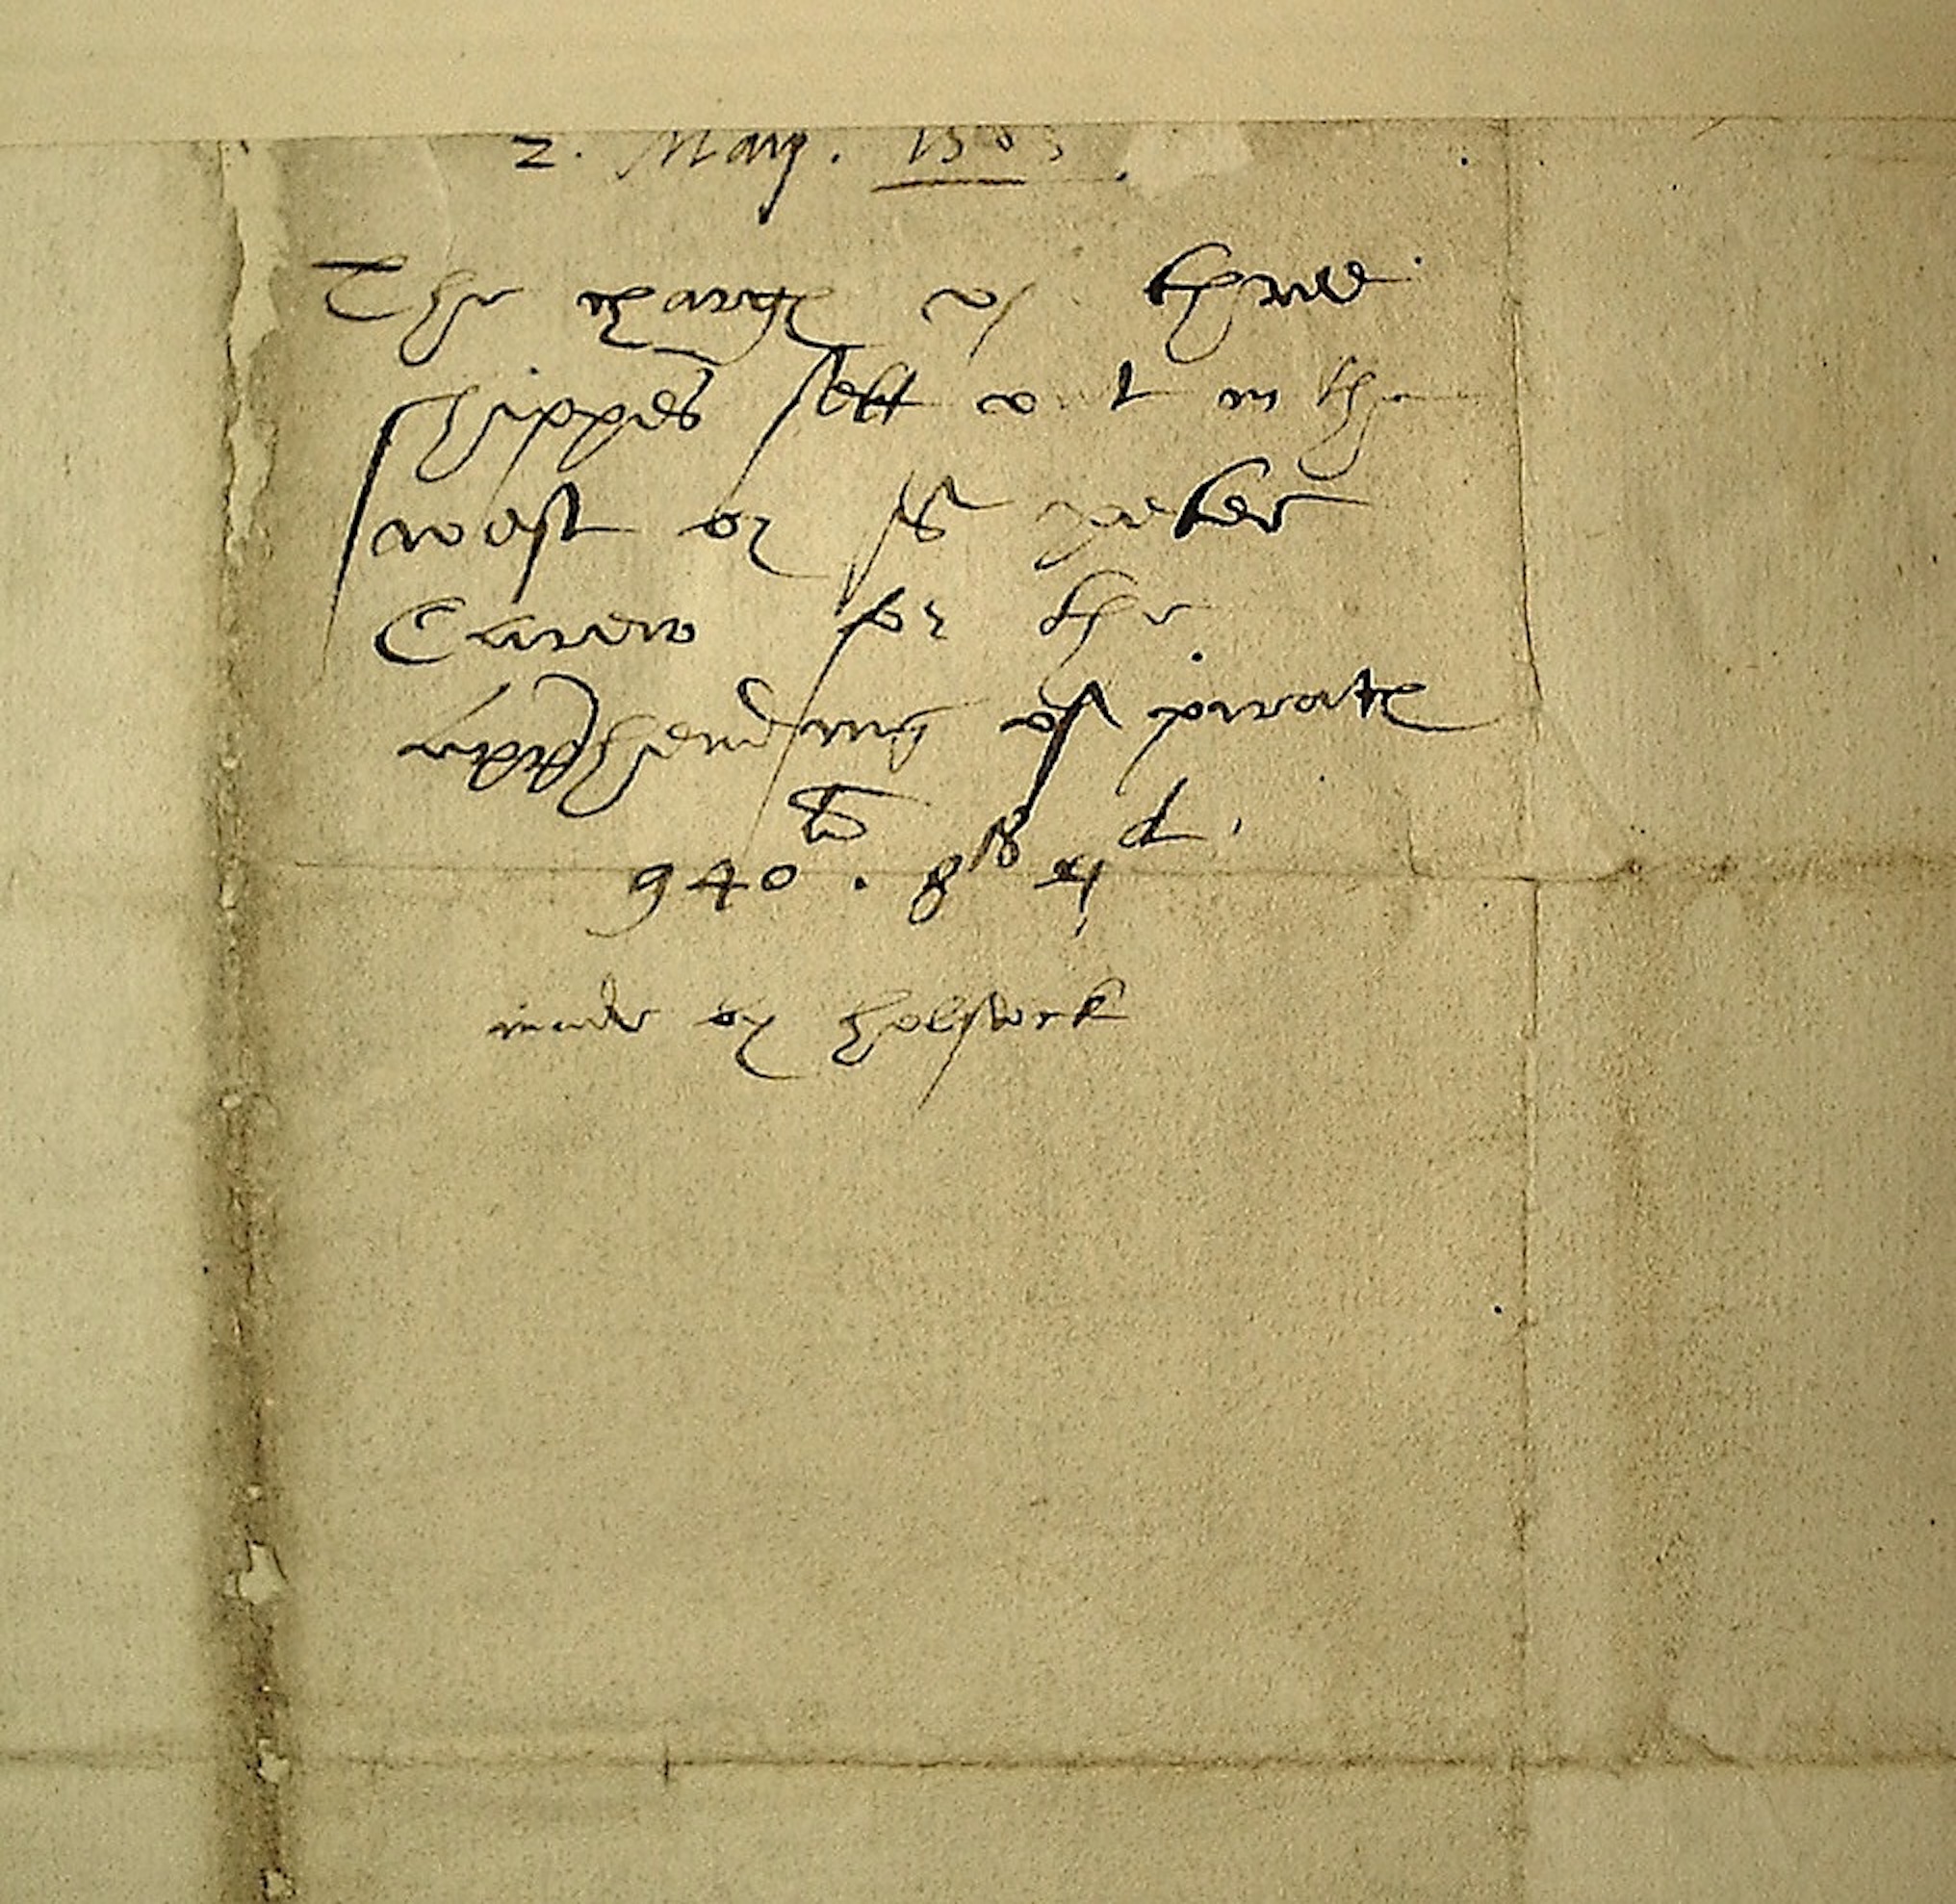 2. May. 1565.
The charge of three
shippes sett out in the
west by Sr peter
Carew for the
apprehending of pirate
940li . 8s 4d .
made by holstock